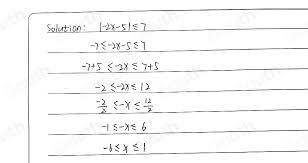 Solution: |-2x-5| ≤ 7
-7 ≤ -2x-5 ≤ 7
-7+5 ≤ -2x ≤ 7+5
-2 ≤ -2x ≤ 12
-2/2 ≤ -x ≤ 12/2
-1 ≤ -x ≤ 6
-6 ≤ x ≤ 1